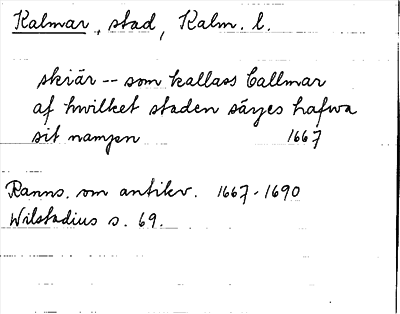 Kalmar, stad, Kalm. l.
skiär -- som kallass Callmar
af hwilket staden säyes hafwa
sit nampn 1667
Ranns. om antikv. 1667-1690
Wilstadius s. 69.